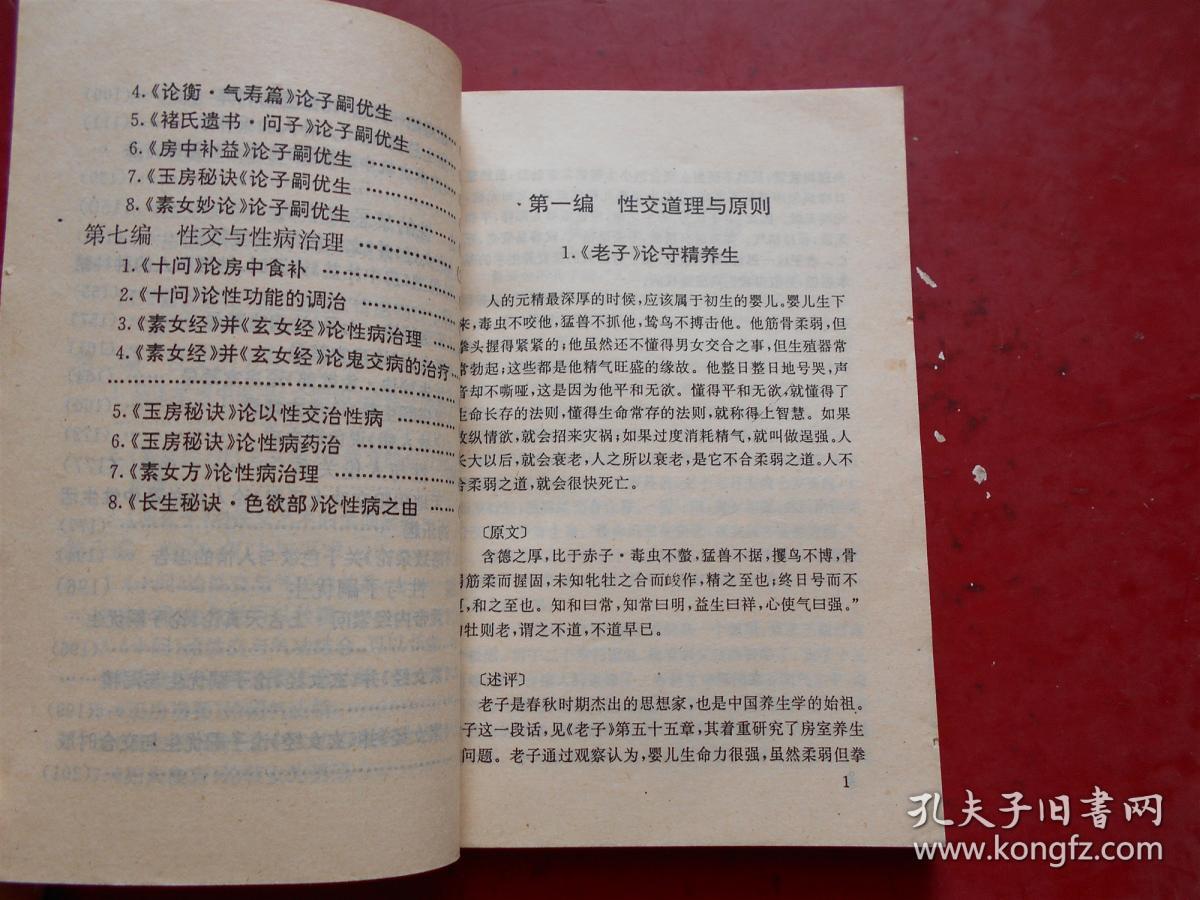 4.《论衡·气寿篇》论子嗣优生 …………
5.《褚氏遗书·问子》论子嗣优生 …………
6.《房中补益》论子嗣优生 …………
7.《玉房秘诀《论子嗣优生 …………
8.《素女妙论》论子嗣优生 …………
第七编 性交与性病治理 …………
1.《十问》论房中食补 …………
2.《十问》论性功能的调治 …………
3.《素女经》并《玄女经》论性病治理 …………
4.《素女经》并《玄女经》论鬼交病的治疗 …
…………………………………………
5.《玉房秘诀》论以性交治性病 …………
6.《玉房秘诀》论性病药治 …………
7.《素女方》论性病治理 …………
8.《长生秘诀·色欲部》论性病之由 ……
第一编 性交道理与原则
1.《老子》论守精养生
人的元精最深厚的时候,应该属于初生的婴儿。婴儿生下
来,毒虫不咬他,猛兽不抓他,鸷鸟不搏击他。他筋骨柔弱,但
拳头握得紧紧的;他虽然还不懂得男女交合之事,但生殖器常
常勃起;这些都是他精气旺盛的缘故。他整日整日地号哭,声
音却不嘶哑,这是因为他平和无欲。懂得平和无欲,就懂得了
生命长存的法则,懂得生命常存的法则,就称得上智慧。如果
放纵情欲,就会招来灾祸;如果过度消耗精气,就叫做逞强。人
长大以后,就会衰老,人之所以衰老,是它不合柔弱之道。人不
合柔弱之道,就会很快死亡。
〔原文〕
含德之厚,比于赤子·毒虫不螫,猛兽不据,攫鸟不博,骨
弱筋柔而握固,未知牝牡之合而峻作,精之至也;终日号而不
,和之至也。知和曰常,知常曰明,益生曰祥,心使气曰强。”
牡则老,谓之不道,不道早已。
〔述评〕
老子是春秋时期杰出的思想家,也是中国养生学的始祖。
子这一段话,见《老子》第五十五章,其着重研究了房室养生
问题。老子通过观察认为,婴儿生命力很强,虽然柔弱但拳
1
孔夫子旧书网
www.kongfz.com